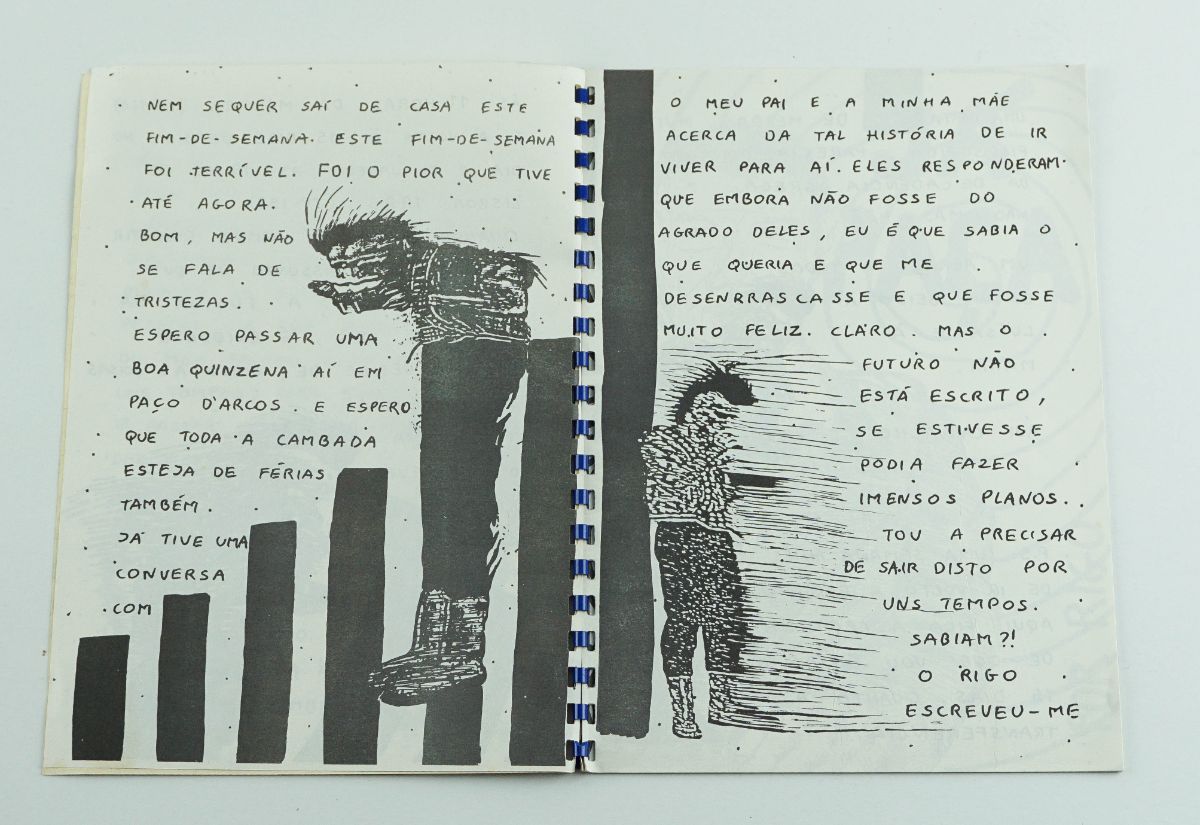 NEM SEQUER SAÍ DE CASA ESTE
FIM-DE-SEMANA. ESTE FIM-DE-SEMANA
FOI TERRÍVEL. FOI O PIOR QUE TIVE
ATÉ AGORA.
BOM, MAS NÃO
SE FALA DE
TRISTEZAS.
ESPERO PASSAR UMA
BOA QUINZENA AÍ EM
PAÇO D'ARCOS. E ESPERO
QUE TODA A CAMBADA
ESTEJA DE FÉRIAS
TAMBÉM.
JÁ TIVE UMA
CONVERSA
COM
O MEU PAI E A MINHA MÃE
ACERCA DA TAL HISTÓRIA DE IR
VIVER PARA AÍ. ELES RESPONDERAM
QUE EMBORA NÃO FOSSE DO
AGRADO DELES, EU É QUE SABIA O
QUE QUERIA E QUE ME
DESENRRASCASSE E QUE FOSSE
MUITO FELIZ. CLARO. MAS O
FUTURO NÃO
ESTÁ ESCRITO,
SE ESTIVESSE
PODIA FAZER
IMENSOS PLANOS.
TOU A PRECISAR
DE SAIR DISTO POR
UNS TEMPOS.
SABIAM?!
O RIGO
ESCREVEU-ME